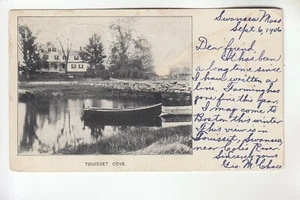 Swansea Mass
Sept. 6, 1906
Dear friend.
It has been
a long time since
I have written a
line. Farming has
gone fine this year.
I may come to
Boston this winter
This view is in
Touisset, Swansea
near Coles River.
Sincerely yours
Geo. M. Chace
TOUISSET COVE.